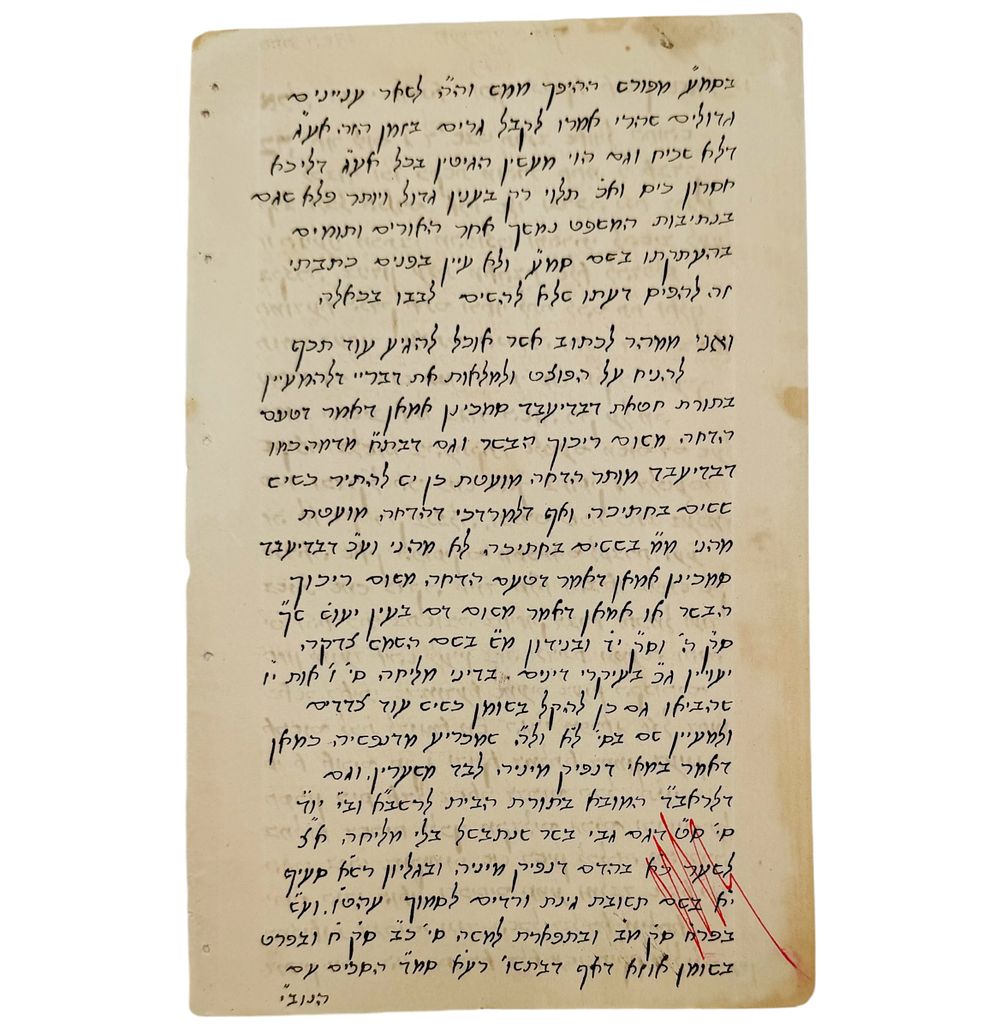 בסמ"ע מפורש ההיפך ממש וה"ה לשאר עניינים
גדולים שהרי אמרו לקבל גרים בזמן הזה אע"ג
דלא שכיח וגם הוי מעשין הגיטין בכל אע"ג דליכא
חסרון כיס וא"כ תלוי רק בענין גדול ויותר פלא שגם
בנתיבות המשפט נמשך אחר האורים ותומים
בהעתקתו בשם סמ"ע ולא עיין בפנים כתבתי
זה להפיס דעתו שלא להשים לבבו בכאלה
ואני ממהר לכתוב אשר אוכל להגיע עוד תכף
להניח על הפוצט ולמלאות את דבריי דלהמעיין
בתורת חטאת דבדיעבד סמכינן אמאן דאמר דטעם
הדחה משום ריכוך הבשר וגם דבת"ח מדמה כמו
דבדיעבד מותר הדחה מועטת כן יש להתיר כשיש
ששים בחתיכה ואף דלמרדכי דהדחה מועטת
מהני מ"מ בששים בחתיכה לא מהני וע"כ דבדיעבד
סמכינן אמאן דאמר דטעם הדחה משום ריכוך
הבשר או אמאן דאמר משום דם בעין יעוש ש"ך
סק ה' וס"ק י"ד ובנידון מ"ש בשם השמש צדקה
יעויין ג"כ בעיקרי דינים בדיני מליחה סי' ו' אות י"ו
שהביאו גם כן להקל בשומן כשיש עוד צדדים
ולמעיין שם בסי' ל"א ול"ה שמכריע מדנפשיה כמאן
דאמר במאי דנפיק מיניה לבד משערין וגם
דלראב"ד המובא בתורת הבית לרשב"א וב"י יו"ד
סי' ס"ט דגם גבי בשר שנתבשל בלי מליחה א"צ
לשער כ"א בהדם דנפיק מיניה ובגליון רש"א סעיף
י"א בשם תשובת גינת ורדים לסמוך עהט"ו ועש
בפר"ח סק מב ובתפארת למשה סי' כ"ב ס"ק ח ובפרט
בשומן אווזא דאף דבתשו' רע"א סמ"ד הסכים עם
הנוב"י